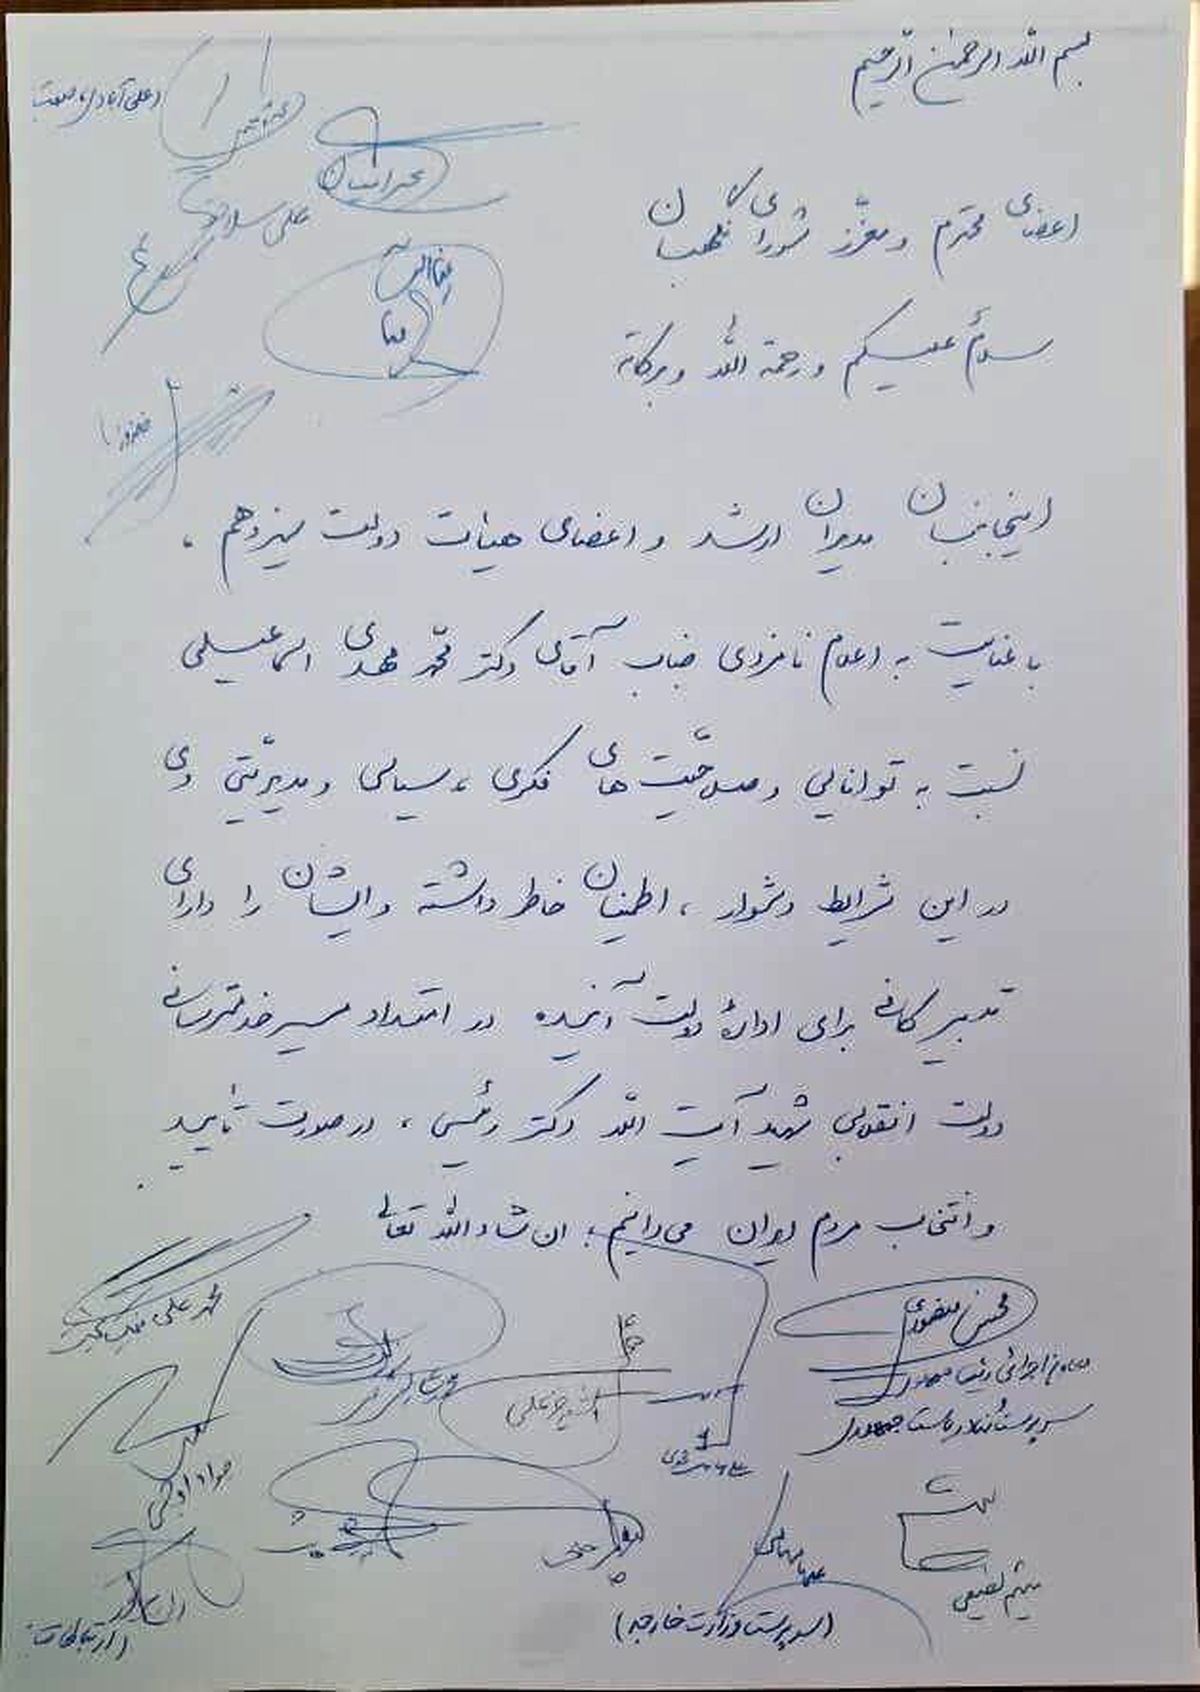 بسم الله الرحمن الرحیم
اعضای محترم و معزز شورای نگهبان
سلامٌ علیکم و رحمة الله و برکاته
اینجانبان مدیران ارشد و اعضای هیئات دولت سیزدهم ،
با عنایت به اعلام نامزدی جناب آقای دکتر محمّد مهدی اسماعیلی
نسبت به توانایی و صلاحیّت های فکری ، سیاسی و مدیریّتی وی
در این شرایط دشوار ، اطمینان خاطر داشته و ایشان را دارای
تدبیر کافی برای ادارهٔ دولت آینده در امتداد مسیر خدمترسانی
دولت انقلابی شهید آیت الله دکتر رئیسی ، در صورت تأیید
و انتخاب مردم ایران می‌دانیم ؛ ان شاء الله تعالی
علی آبادی، صمت
محرابیان
علی سلاجقه
محسن منصوری
معاون اجرائی رئیس جمهور
سرپرست نهاد ریاست جمهوری
محمد علی
جواد اوجی
میثم لطیفی
(سرپرست وزارت خارجه)
(ارتباطات)